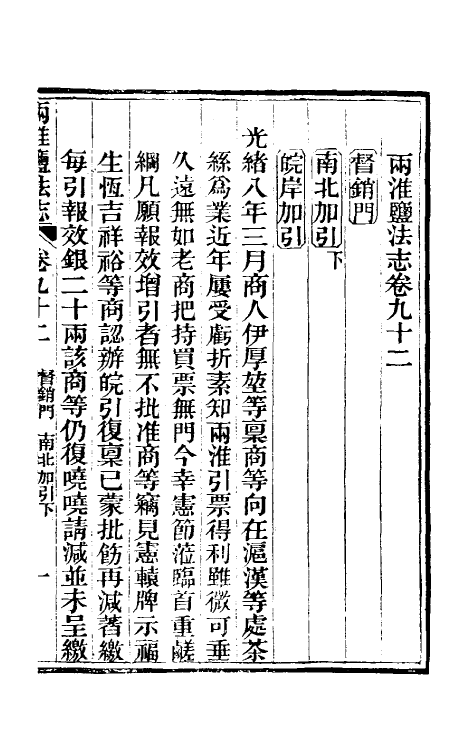 兩淮鹽法志卷九十二
督銷門
南北加引下
皖岸加引
光緒八年三月商人伊厚堃等稟商等向在滬漢等處茶
絲爲業近年屢受虧折素知兩淮引票得利雖微可垂
久遠無如老商把持買票無門今幸憲節蒞臨首重鹺
綱凡願報效增引者無不批准商等竊見憲轅牌示福
生恆吉祥裕等商認辦皖引復稟已蒙批飭再減著繳
每引報效銀二十兩該商等仍復嘵嘵請減並未呈繳
兩淮鹽法志 卷九十二 督銷門 南北加引下 一